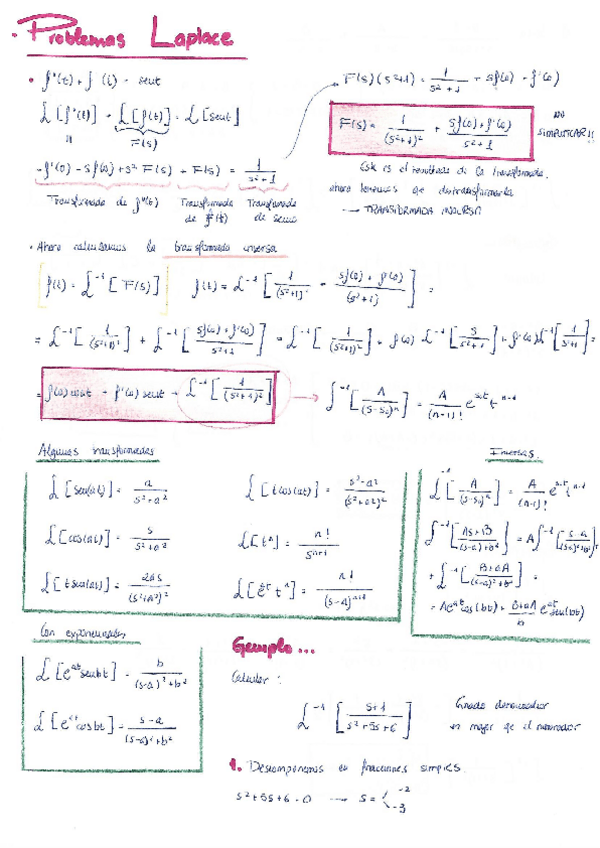 Problemas Laplace
• f''(t) + f(t) = sent
ℒ[f''(t)] + ℒ[f(t)] = ℒ[sent]
F(s)
-f'(0) - sf(0) + s² F(s) + F(s) = 1/(s²+1)
Transformada de f''(t)   Transformada de f(t)   Transformada de seno
F(s)(s²+1) = 1/(s²+1) + sf(0) + f'(0)
F(s) = 1/(s²+1)² + (sf(0)+f'(0))/(s²+1)
SIMPLIFICAR!!
Este es el resultado de la transformada.
ahora tenemos que
→ TRANSFORMADA INVERSA
• Ahora calculamos la transformada inversa
f(t) = ℒ⁻¹[F(s)]   f(t) = ℒ⁻¹[1/(s²+1)² + (sf(0)+f'(0))/(s²+1)] =
= ℒ⁻¹[1/(s²+1)²] + ℒ⁻¹[(sf(0)+f'(0))/(s²+1)] = ℒ⁻¹[1/(s²+1)²] + f(0) · ℒ⁻¹[s/(s²+1)] + f'(0) ℒ⁻¹[1/(s²+1)] =
= f(0) cost + f'(0) sent + ℒ⁻¹[1/(s²+1)²] → ℒ⁻¹[A/(s-s₀)ⁿ] = A/(n-1)! e^(s₀t) t^(n-1)
Algunas transformadas
ℒ[sen(at)] = a/(s²+a²)   ℒ[tcos(at)] = (s²-a²)/(s²+a²)²
ℒ[cos(at)] = s/(s²+a²)   ℒ[tⁿ] = n!/s^(n+1)
ℒ[tsen(at)] = 2as/(s²+a²)²   ℒ[e^(at) tⁿ] = n!/(s-a)^(n+1)
Inversas
ℒ⁻¹[A/(s-s₀)ⁿ] = A/(n-1)! e^(s₀t) t^(n-1)
ℒ⁻¹[(As+B)/((s-a)²+b²)] = Aℒ⁻¹[(s-a)/((s-a)²+b²)]
+ ℒ⁻¹[(B+aA)/((s-a)²+b²)] =
= Ae^(at)cos(bt) + (B+aA)/b e^(at)sen(bt)
Con exponenciales
ℒ[e^(at)senbt] = b/((s-a)²+b²)
ℒ[e^(at)cosbt] = (s-a)/((s-a)²+b²)
Ejemplo...
Calcular:
ℒ⁻¹[(s+1)/(s²+5s+6)]   Grado denominador
es mayor que el numerador
1. Descomponemos en fracciones simples.
s²+5s+6=0 → s = -2
-3